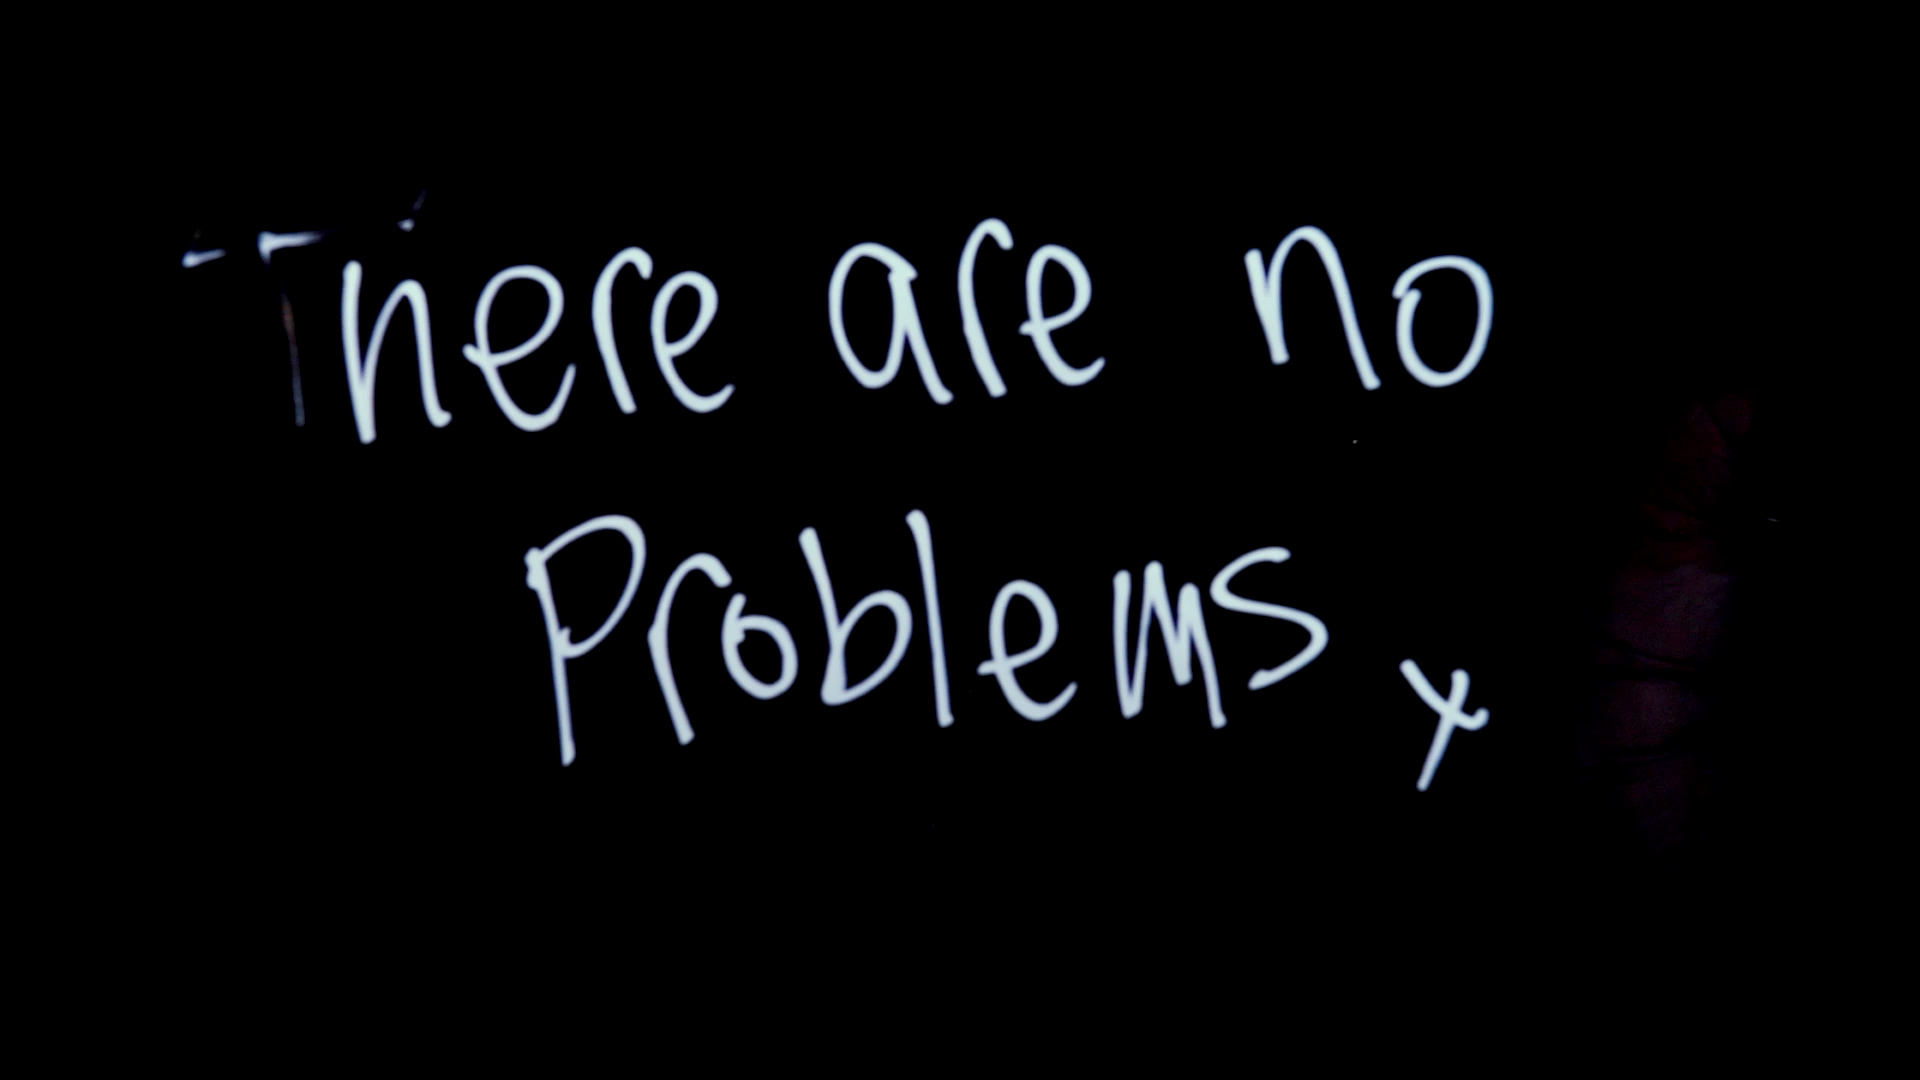 There are no
Problems x